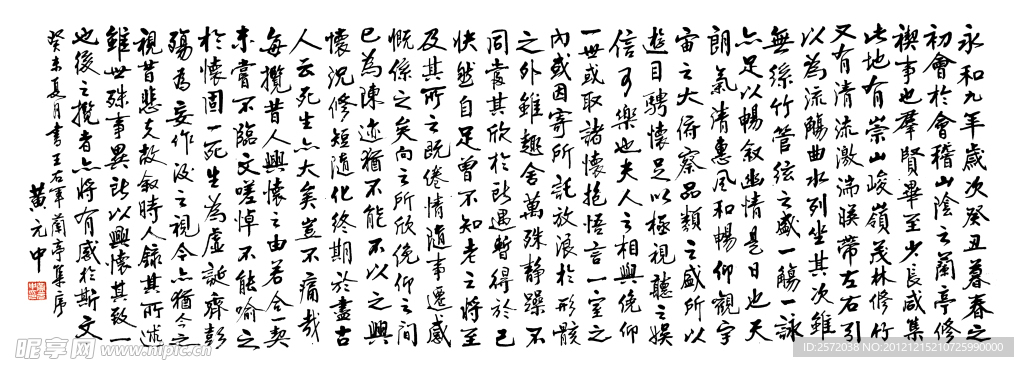 永和九年歲次癸丑暮春之
初會於會稽山陰之蘭亭修
禊事也羣賢畢至少長咸集
此地有崇山峻嶺茂林修竹
又有清流激湍暎帶左右引
以為流觴曲水列坐其次雖
無絲竹管弦之盛一觴一詠
亦足以暢叙幽情是日也天
朗氣清惠風和暢仰觀宇
宙之大俯察品類之盛所以
遊目騁懷足以極視聽之娛
信可樂也夫人之相與俛仰
一世或取諸懷抱悟言一室之
內或因寄所託放浪於形骸
之外雖趣舍萬殊靜躁不
同當其欣於所遇暫得於己
快然自足曾不知老之將至
及其所之既倦情隨事遷感
慨係之矣向之所欣俛仰之間
已為陳迹猶不能不以之興
懷況修短隨化終期於盡古
人云死生亦大矣豈不痛哉
每攬昔人興懷之由若合一契
未嘗不臨文嗟悼不能喻之
於懷固一死生為虛誕齊彭
殤為妄作後之視今亦猶今之
視昔悲夫故叙時人錄其所述
雖世殊事異所以興懷其致一
也後之攬者亦將有感於斯文
癸未夏月書王右軍蘭亭集序
黃元中
昵享网 www.nipic.cn
ID:2572038 NO:20121215210725990000